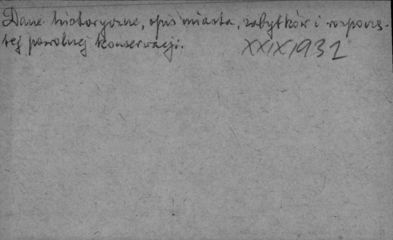 Dane historyczne, opis miasta, zabytków i rozpoczę-
tej powolnej konserwacji.
XXIX/1932